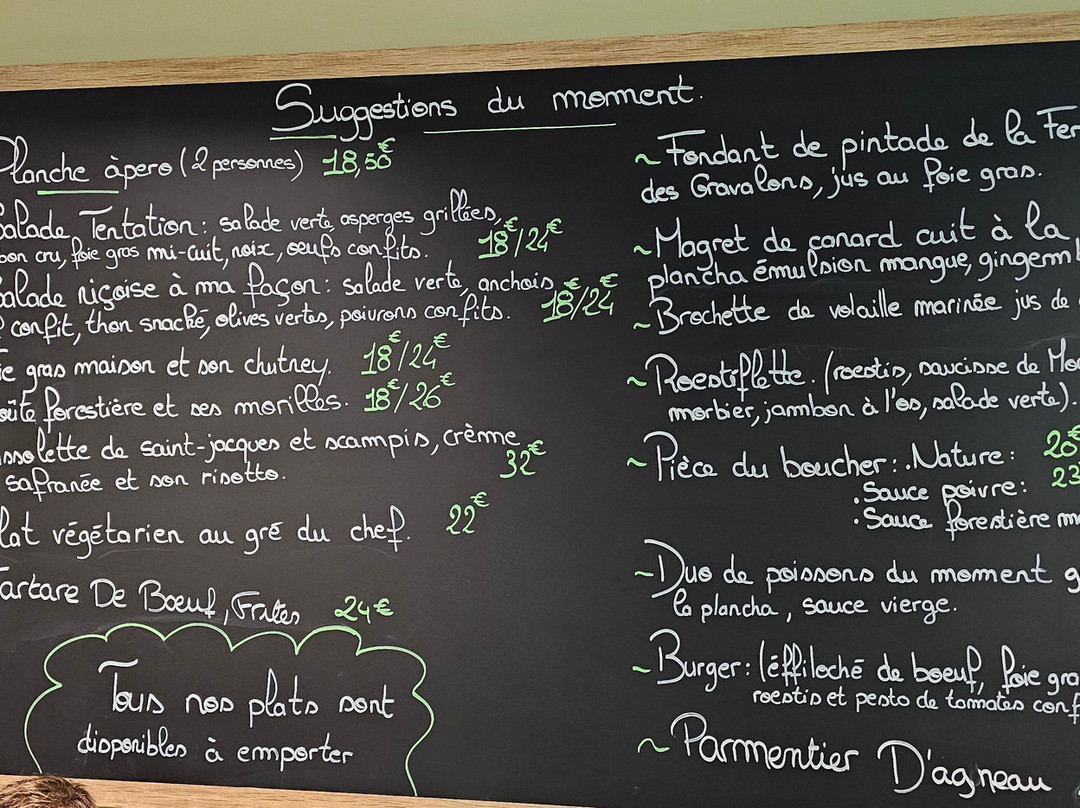 Suggestions du moment.
Planche àpero (2 personnes) 18,50€
Salade Tentation: salade verte, asperges grillées,
bon cru, foie gras mi-cuit, noix, oeufs confits. 18€/24€
Salade niçoise à ma façon: salade verte, anchois,
confit, thon snacké, olives vertes, poivrons confits. 18€/24€
ie gras maison et son chutney. 18€/24€
oûte forestière et ses morilles. 18€/26€
ssolette de saint-jacques et scampis, crème
safranée et son risotto. 32€
lat végétarien au gré du chef. 22€
Tartare De Boeuf, Frites 24€
Tous nos plats sont
disponibles à emporter
~ Fondant de pintade de la Fer
des Gravalons, jus au foie gras.
~ Magret de canard cuit à la
plancha émulsion mangue, gingemb
~ Brochette de volaille marinée jus de
~ Roestiflette. (roestis, saucisse de Mo
morbier, jambon à l'os, salade verte).
~ Pièce du boucher: . Nature: 20€
. Sauce poivre: 23
. Sauce forestière mo
~ Duo de poissons du moment g
la plancha, sauce vierge.
~ Burger: (éffiloché de boeuf, foie gra
roestis et pesto de tomates conf
~ Parmentier D'agneau